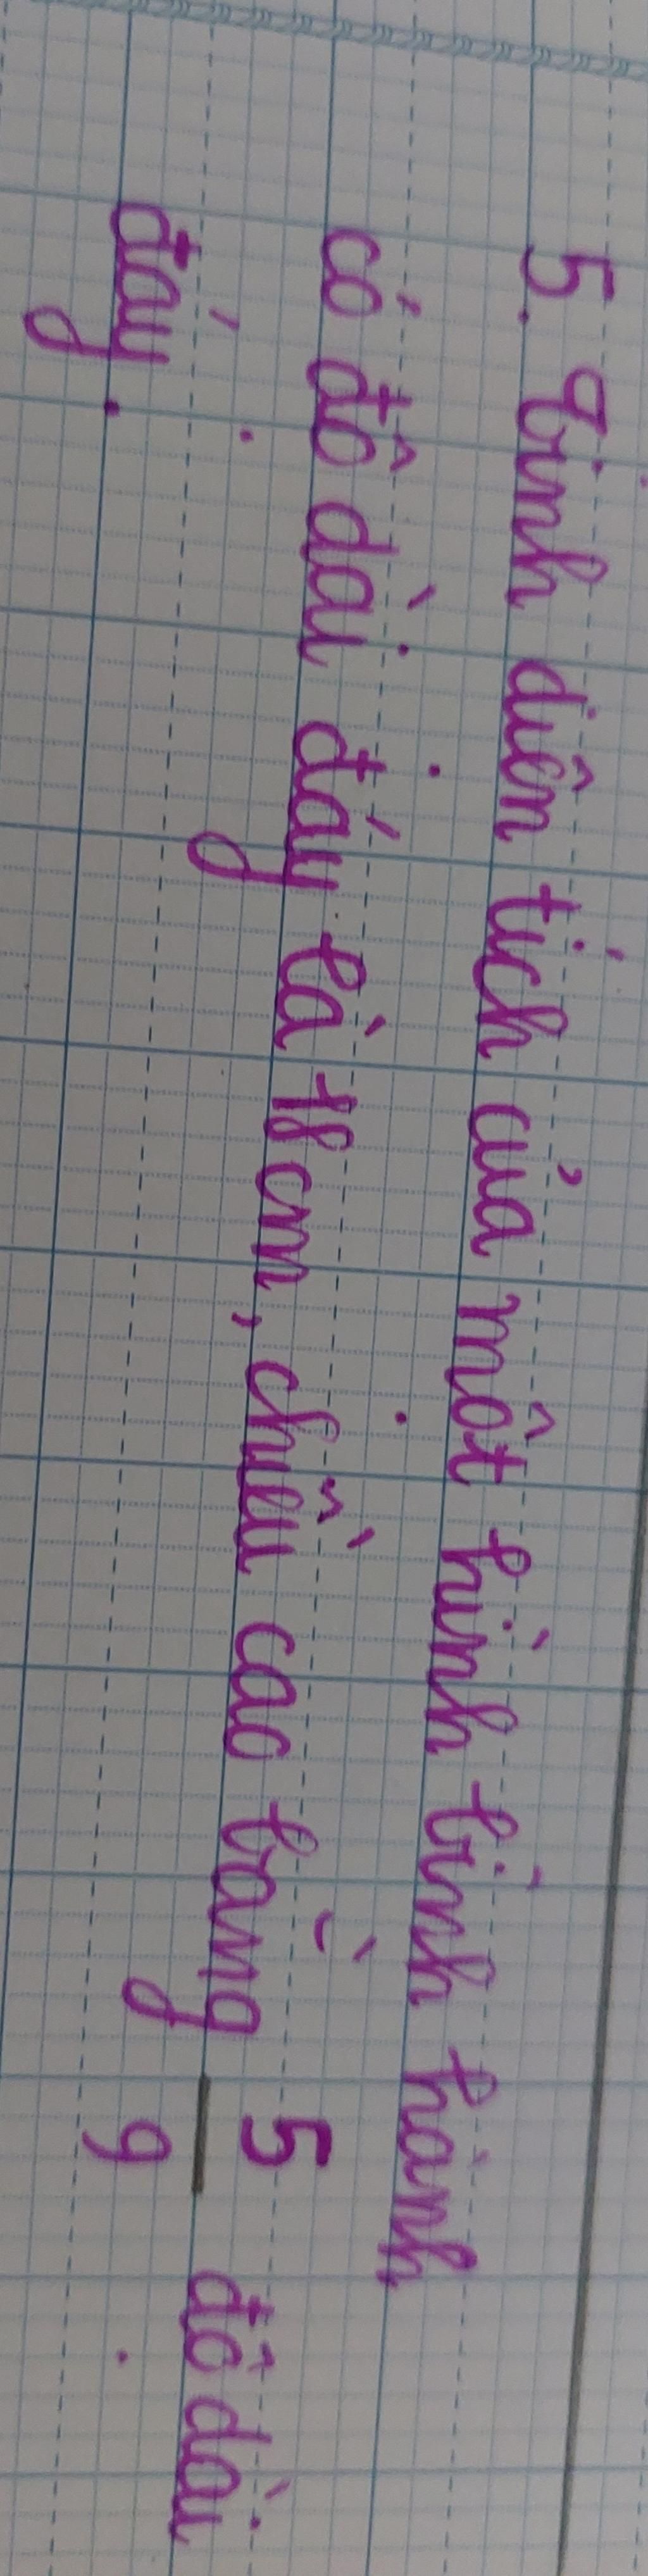 5. Tính diện tích của một hình bình hành
có độ dài đáy là 18 cm, chiều cao bằng 5/9 độ dài
đáy.